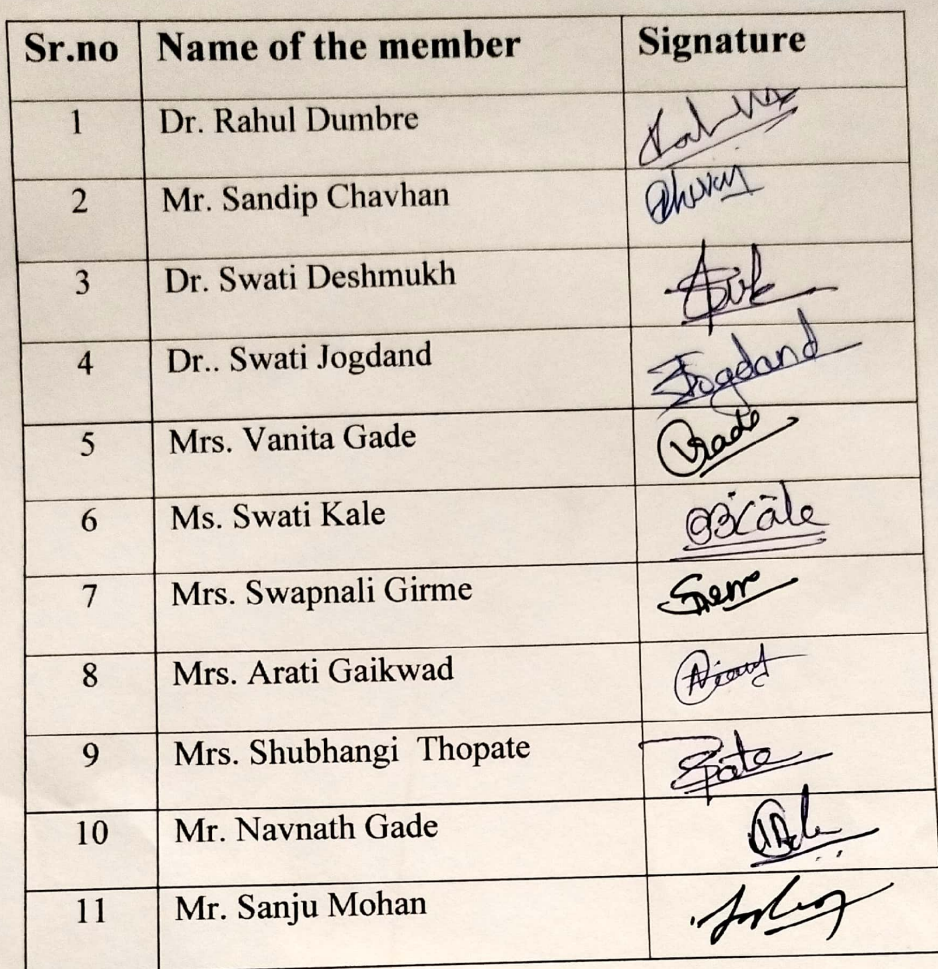 Sr.no Name of the member Signature
1 Dr. Rahul Dumbre
2 Mr. Sandip Chavhan
3 Dr. Swati Deshmukh
4 Dr.. Swati Jogdand Jogdand
5 Mrs. Vanita Gade
6 Ms. Swati Kale
7 Mrs. Swapnali Girme
8 Mrs. Arati Gaikwad
9 Mrs. Shubhangi Thopate
10 Mr. Navnath Gade
11 Mr. Sanju Mohan